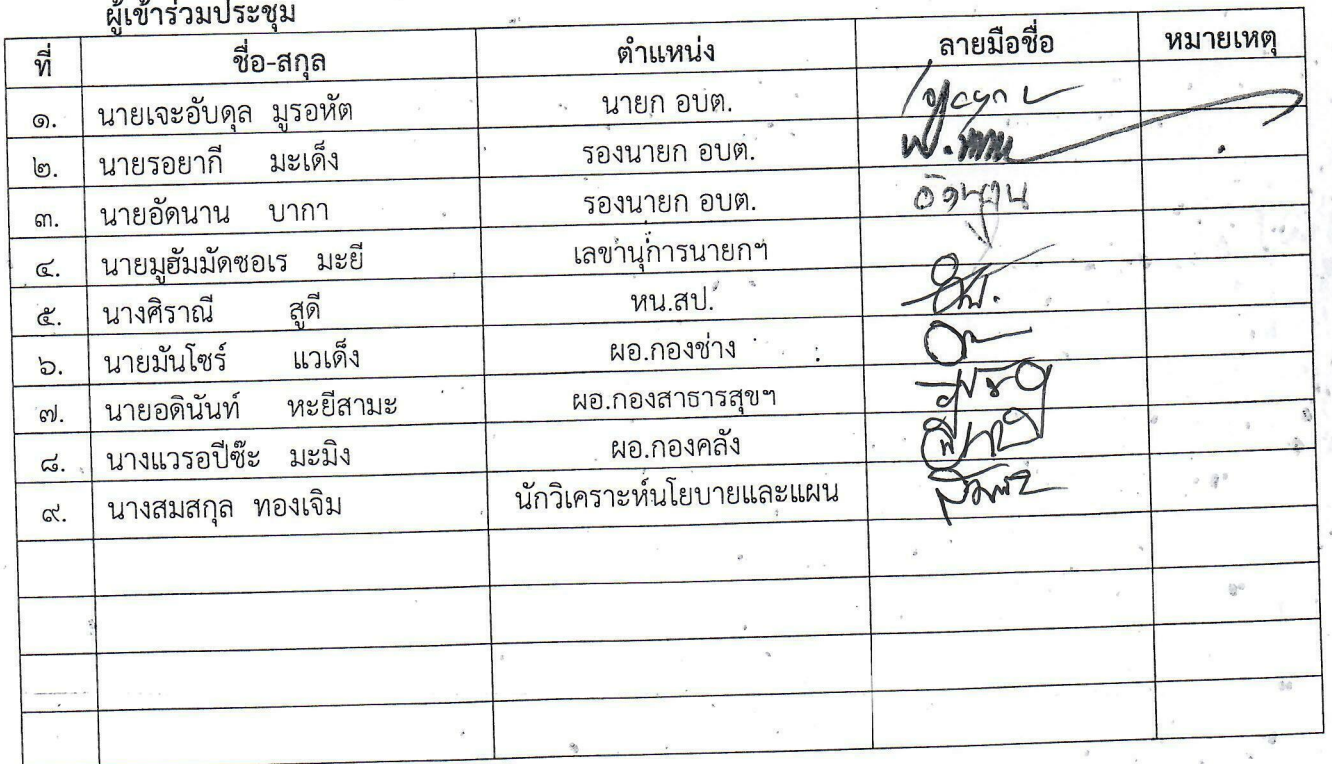 ผู้เข้าร่วมประชุม
ที่ ชื่อ-สกุล ตำแหน่ง ลายมือชื่อ หมายเหตุ
๑. นายเจะอับดุล มูรอหัต นายก อบต.
๒. นายรอยากี มะเด็ง รองนายก อบต.
๓. นายอัดนาน บากา รองนายก อบต. อัดนาน
๔. นายมูฮัมมัดซอเร มะยี เลขานุการนายกฯ
๕. นางศิราณี สูดี หน.สป.
๖. นายมันโซร์ แวเด็ง ผอ.กองช่าง
๗. นายอดินันท์ หะยีสามะ ผอ.กองสาธารสุขฯ
๘. นางแวรอปีซ๊ะ มะมิง ผอ.กองคลัง
๙. นางสมสกุล ทองเจิม นักวิเคราะห์นโยบายและแผน